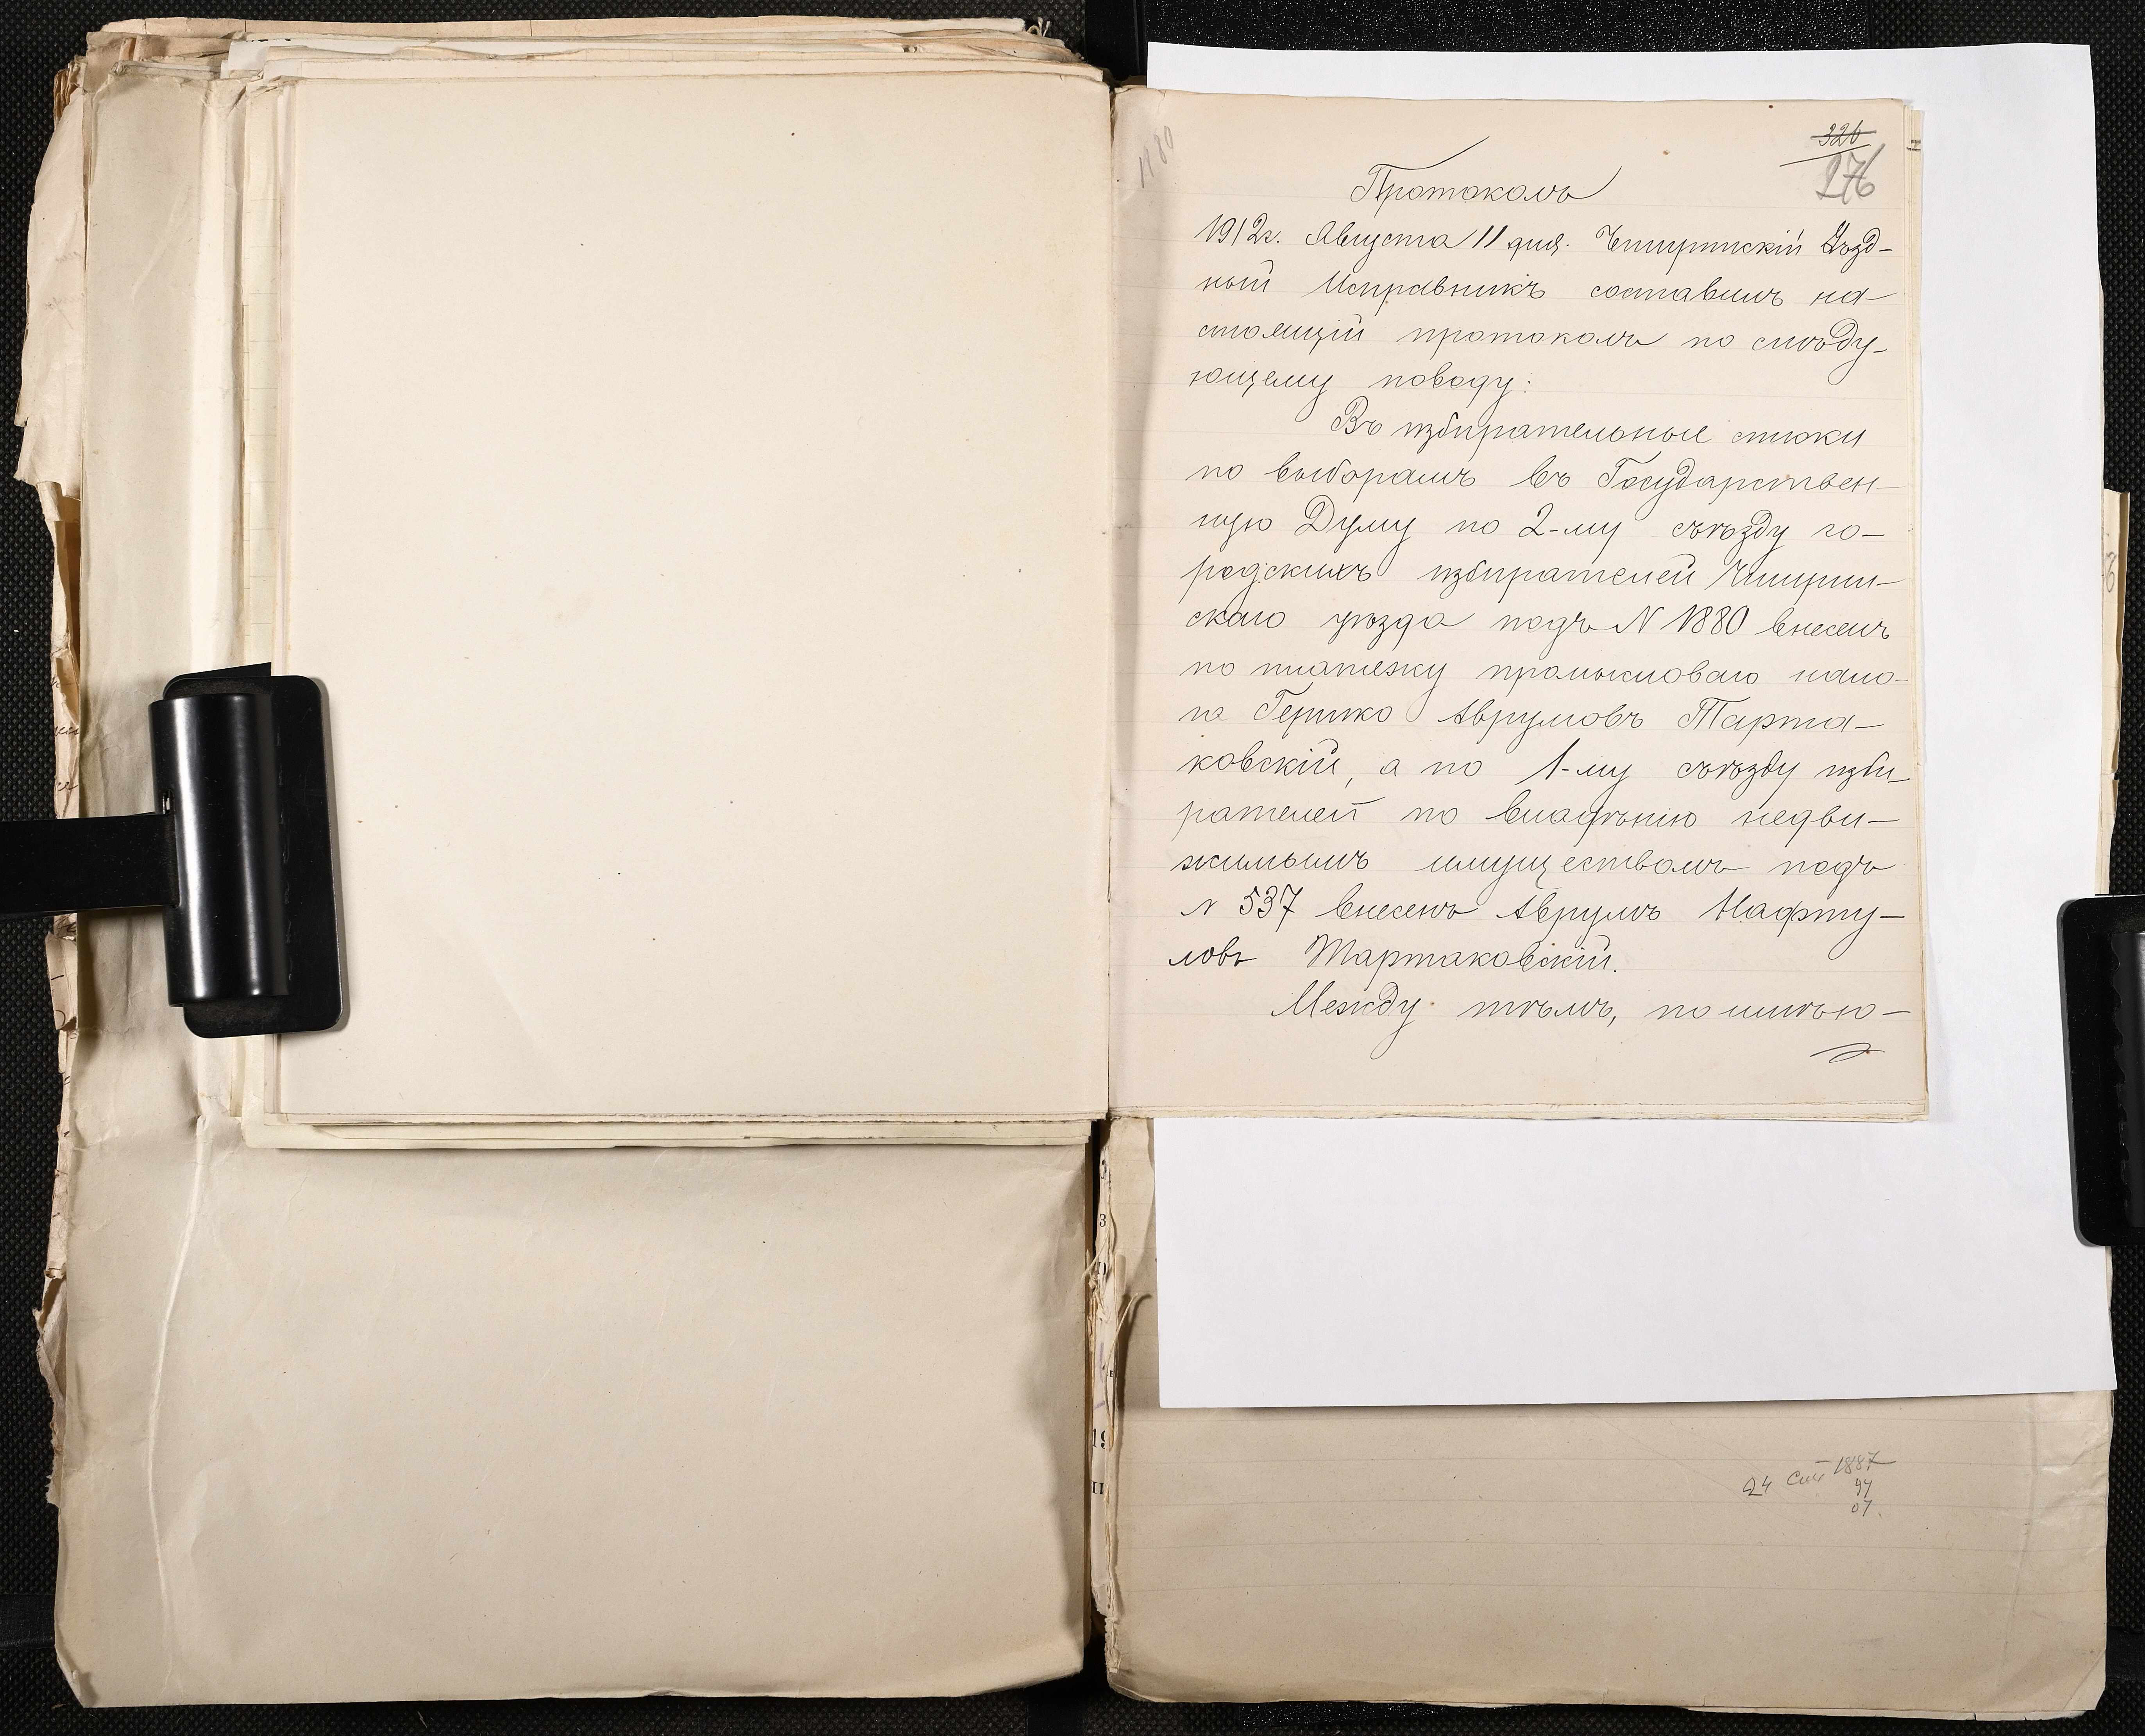 1180
326
276
Протоколъ
1912г. Августа 11 дня. Чигиринскій Уѣзд-
ный Исправникъ составилъ на-
стоящій протоколъ по слѣду-
ющему поводу:
Въ избирательные списки
по выборамъ въ Государствен-
ную Думу по 2-му съѣзду го-
родскихъ избирателей Чигирин-
скаго уѣзда подъ N 1880 внесенъ
по платежу промысловаго нало-
га Гершко Аврумовъ Тарта-
ковскій, а по 1-му съѣзду изби
рателей по владѣнію недви-
жимымъ имуществомъ подъ
N 537 внесенъ Аврумъ Нафту-
ловъ Тартаковскій.
Между тѣмъ, по имѣю-
24 1887
97
07.